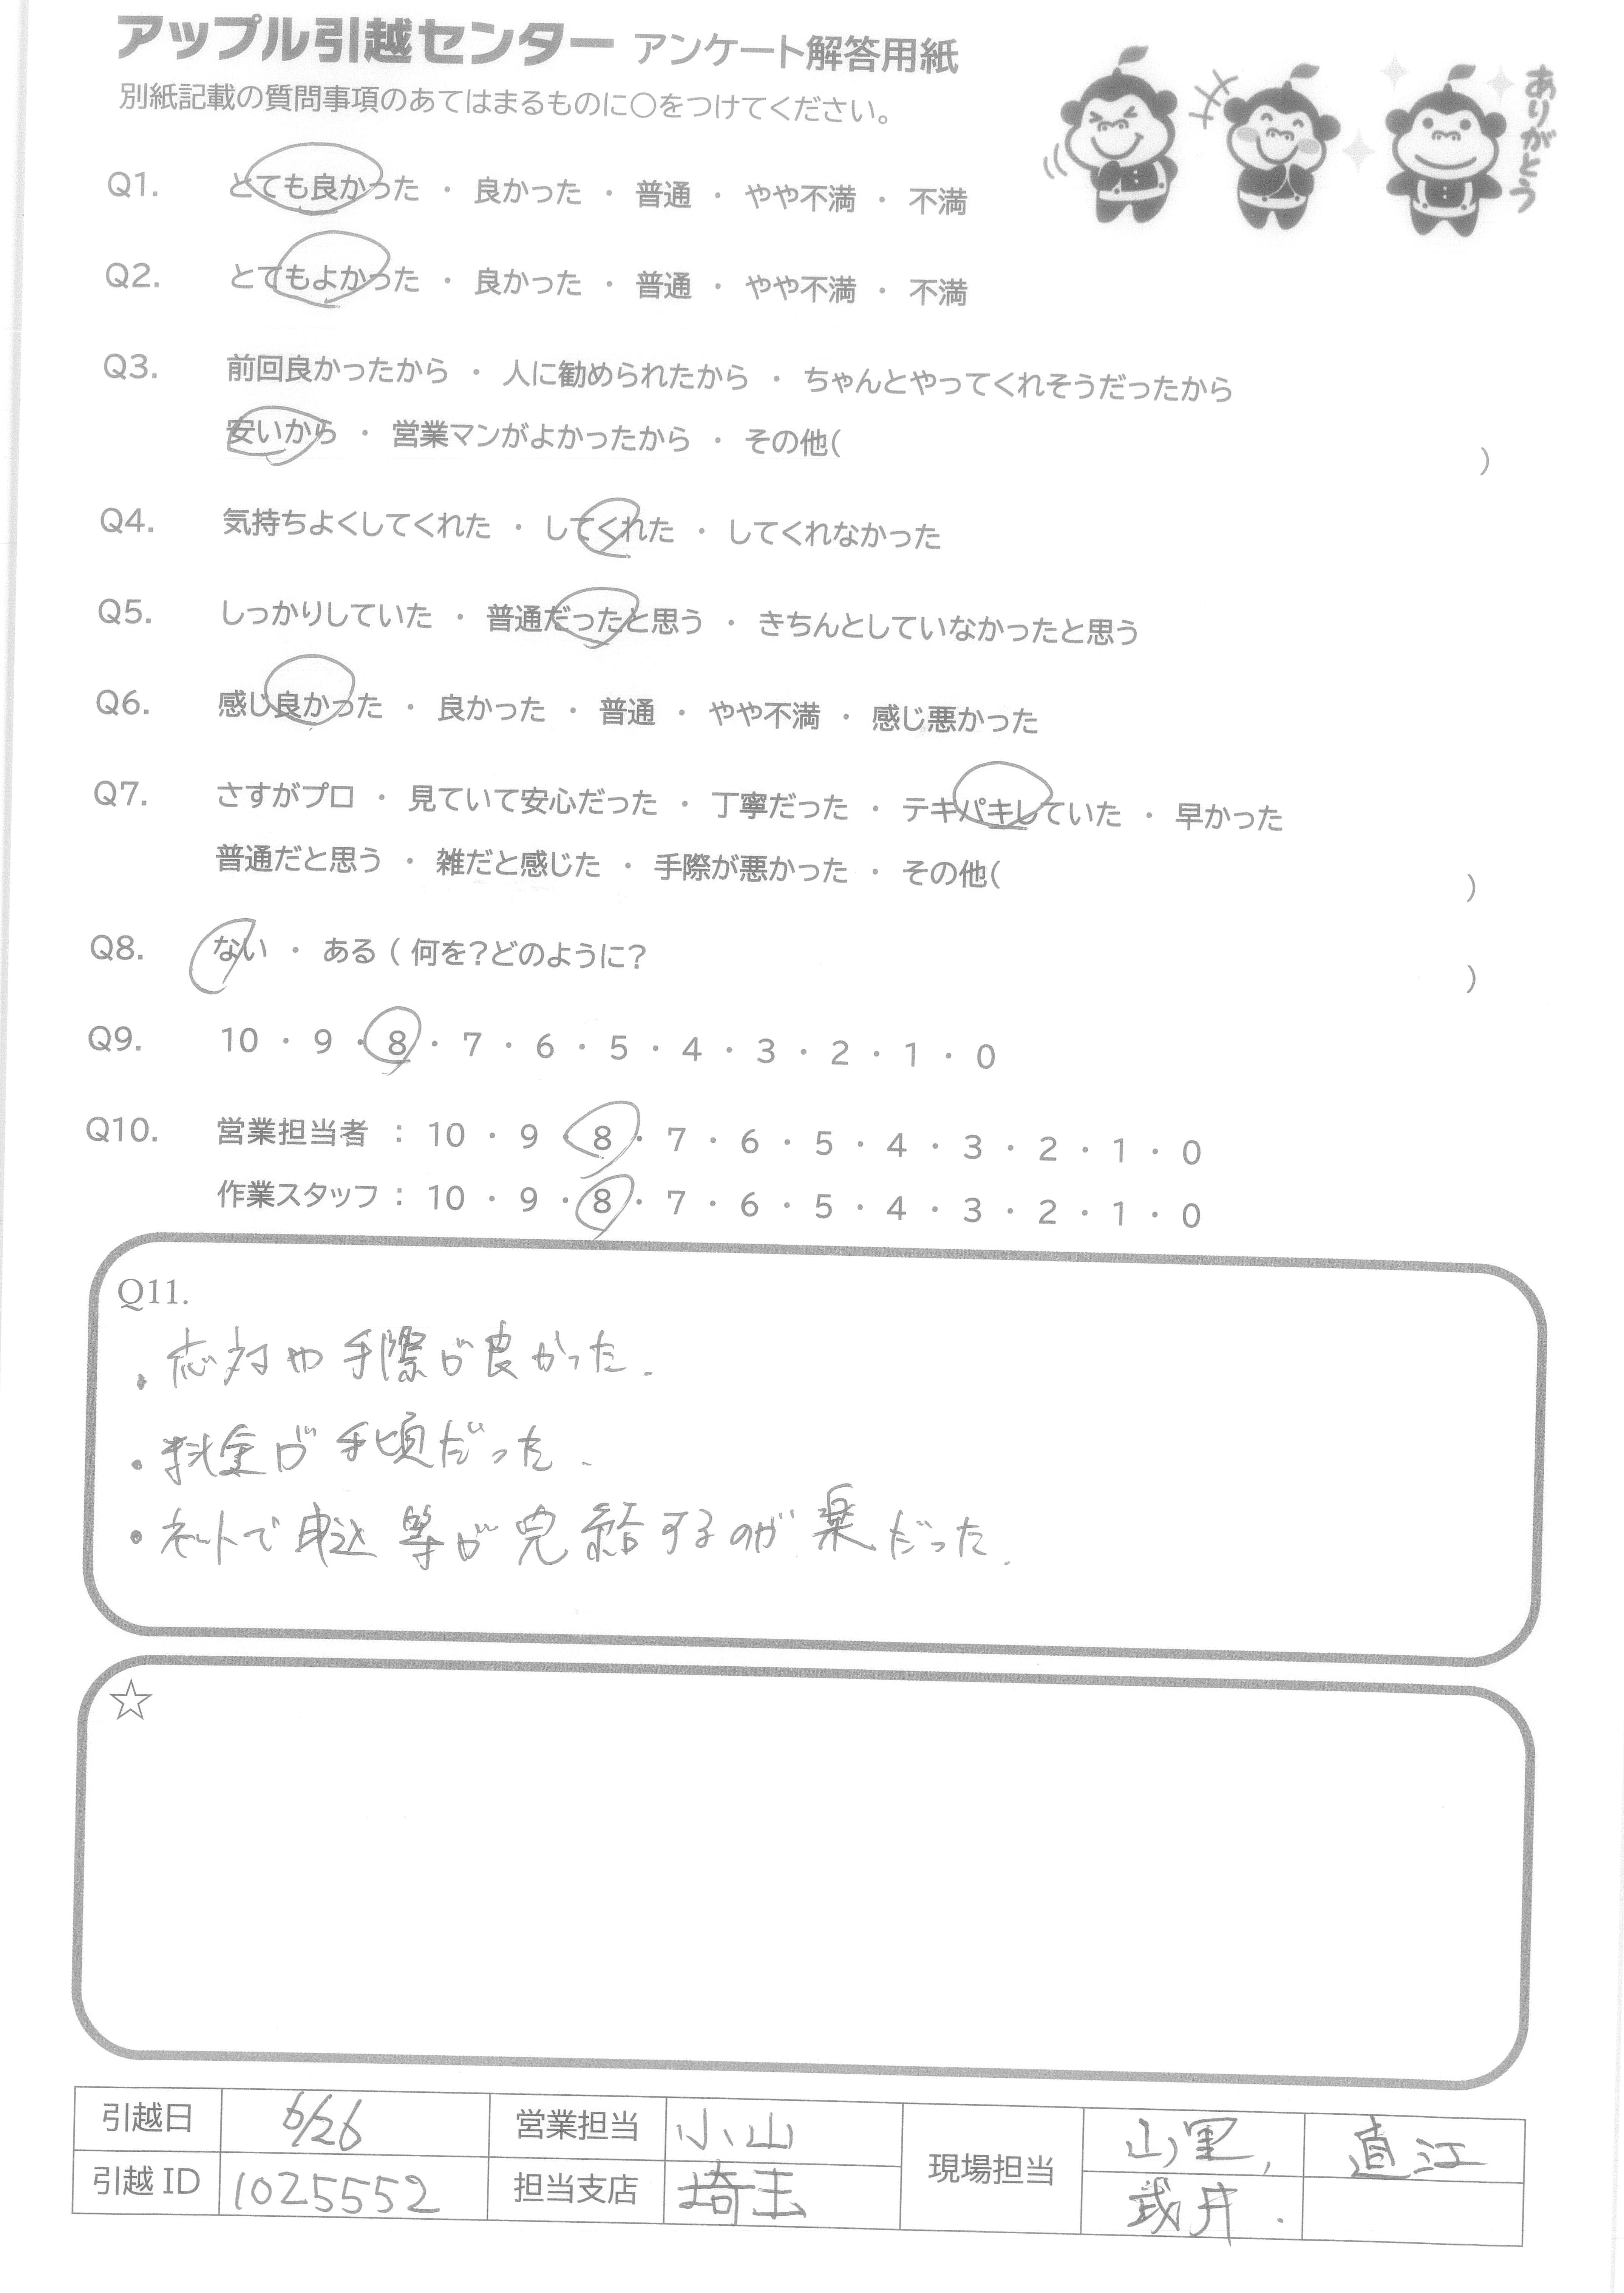 アップル引越センター アンケート解答用紙
別紙記載の質問事項のあてはまるものに○をつけてください。
ありがとう
Q1. とても良かった ・ 良かった ・ 普通 ・ やや不満 ・ 不満
Q2. とてもよかった ・ 良かった ・ 普通 ・ やや不満 ・ 不満
Q3. 前回良かったから ・ 人に勧められたから ・ ちゃんとやってくれそうだったから
安いから ・ 営業マンがよかったから ・ その他( )
Q4. 気持ちよくしてくれた ・ してくれた ・ してくれなかった
Q5. しっかりしていた ・ 普通だったと思う ・ きちんとしていなかったと思う
Q6. 感じ良かった ・ 良かった ・ 普通 ・ やや不満 ・ 感じ悪かった
Q7. さすがプロ ・ 見ていて安心だった ・ 丁寧だった ・ テキパキしていた ・ 早かった
普通だと思う ・ 雑だと感じた ・ 手際が悪かった ・ その他( )
Q8. ない ・ ある ( 何を?どのように? )
Q9. 10 ・ 9 ・ 8 ・ 7 ・ 6 ・ 5 ・ 4 ・ 3 ・ 2 ・ 1 ・ 0
Q10. 営業担当者 : 10 ・ 9 ・ 8 ・ 7 ・ 6 ・ 5 ・ 4 ・ 3 ・ 2 ・ 1 ・ 0
作業スタッフ : 10 ・ 9 ・ 8 ・ 7 ・ 6 ・ 5 ・ 4 ・ 3 ・ 2 ・ 1 ・ 0
Q11.
・応対や手際が良かった.
・料金が手頃だった.
・ネットで申込等が完結するのが楽だった.
☆
引越日 6/26 営業担当 小山 現場担当 山里, 直江
引越ID 1025552 担当支店 埼玉 井.